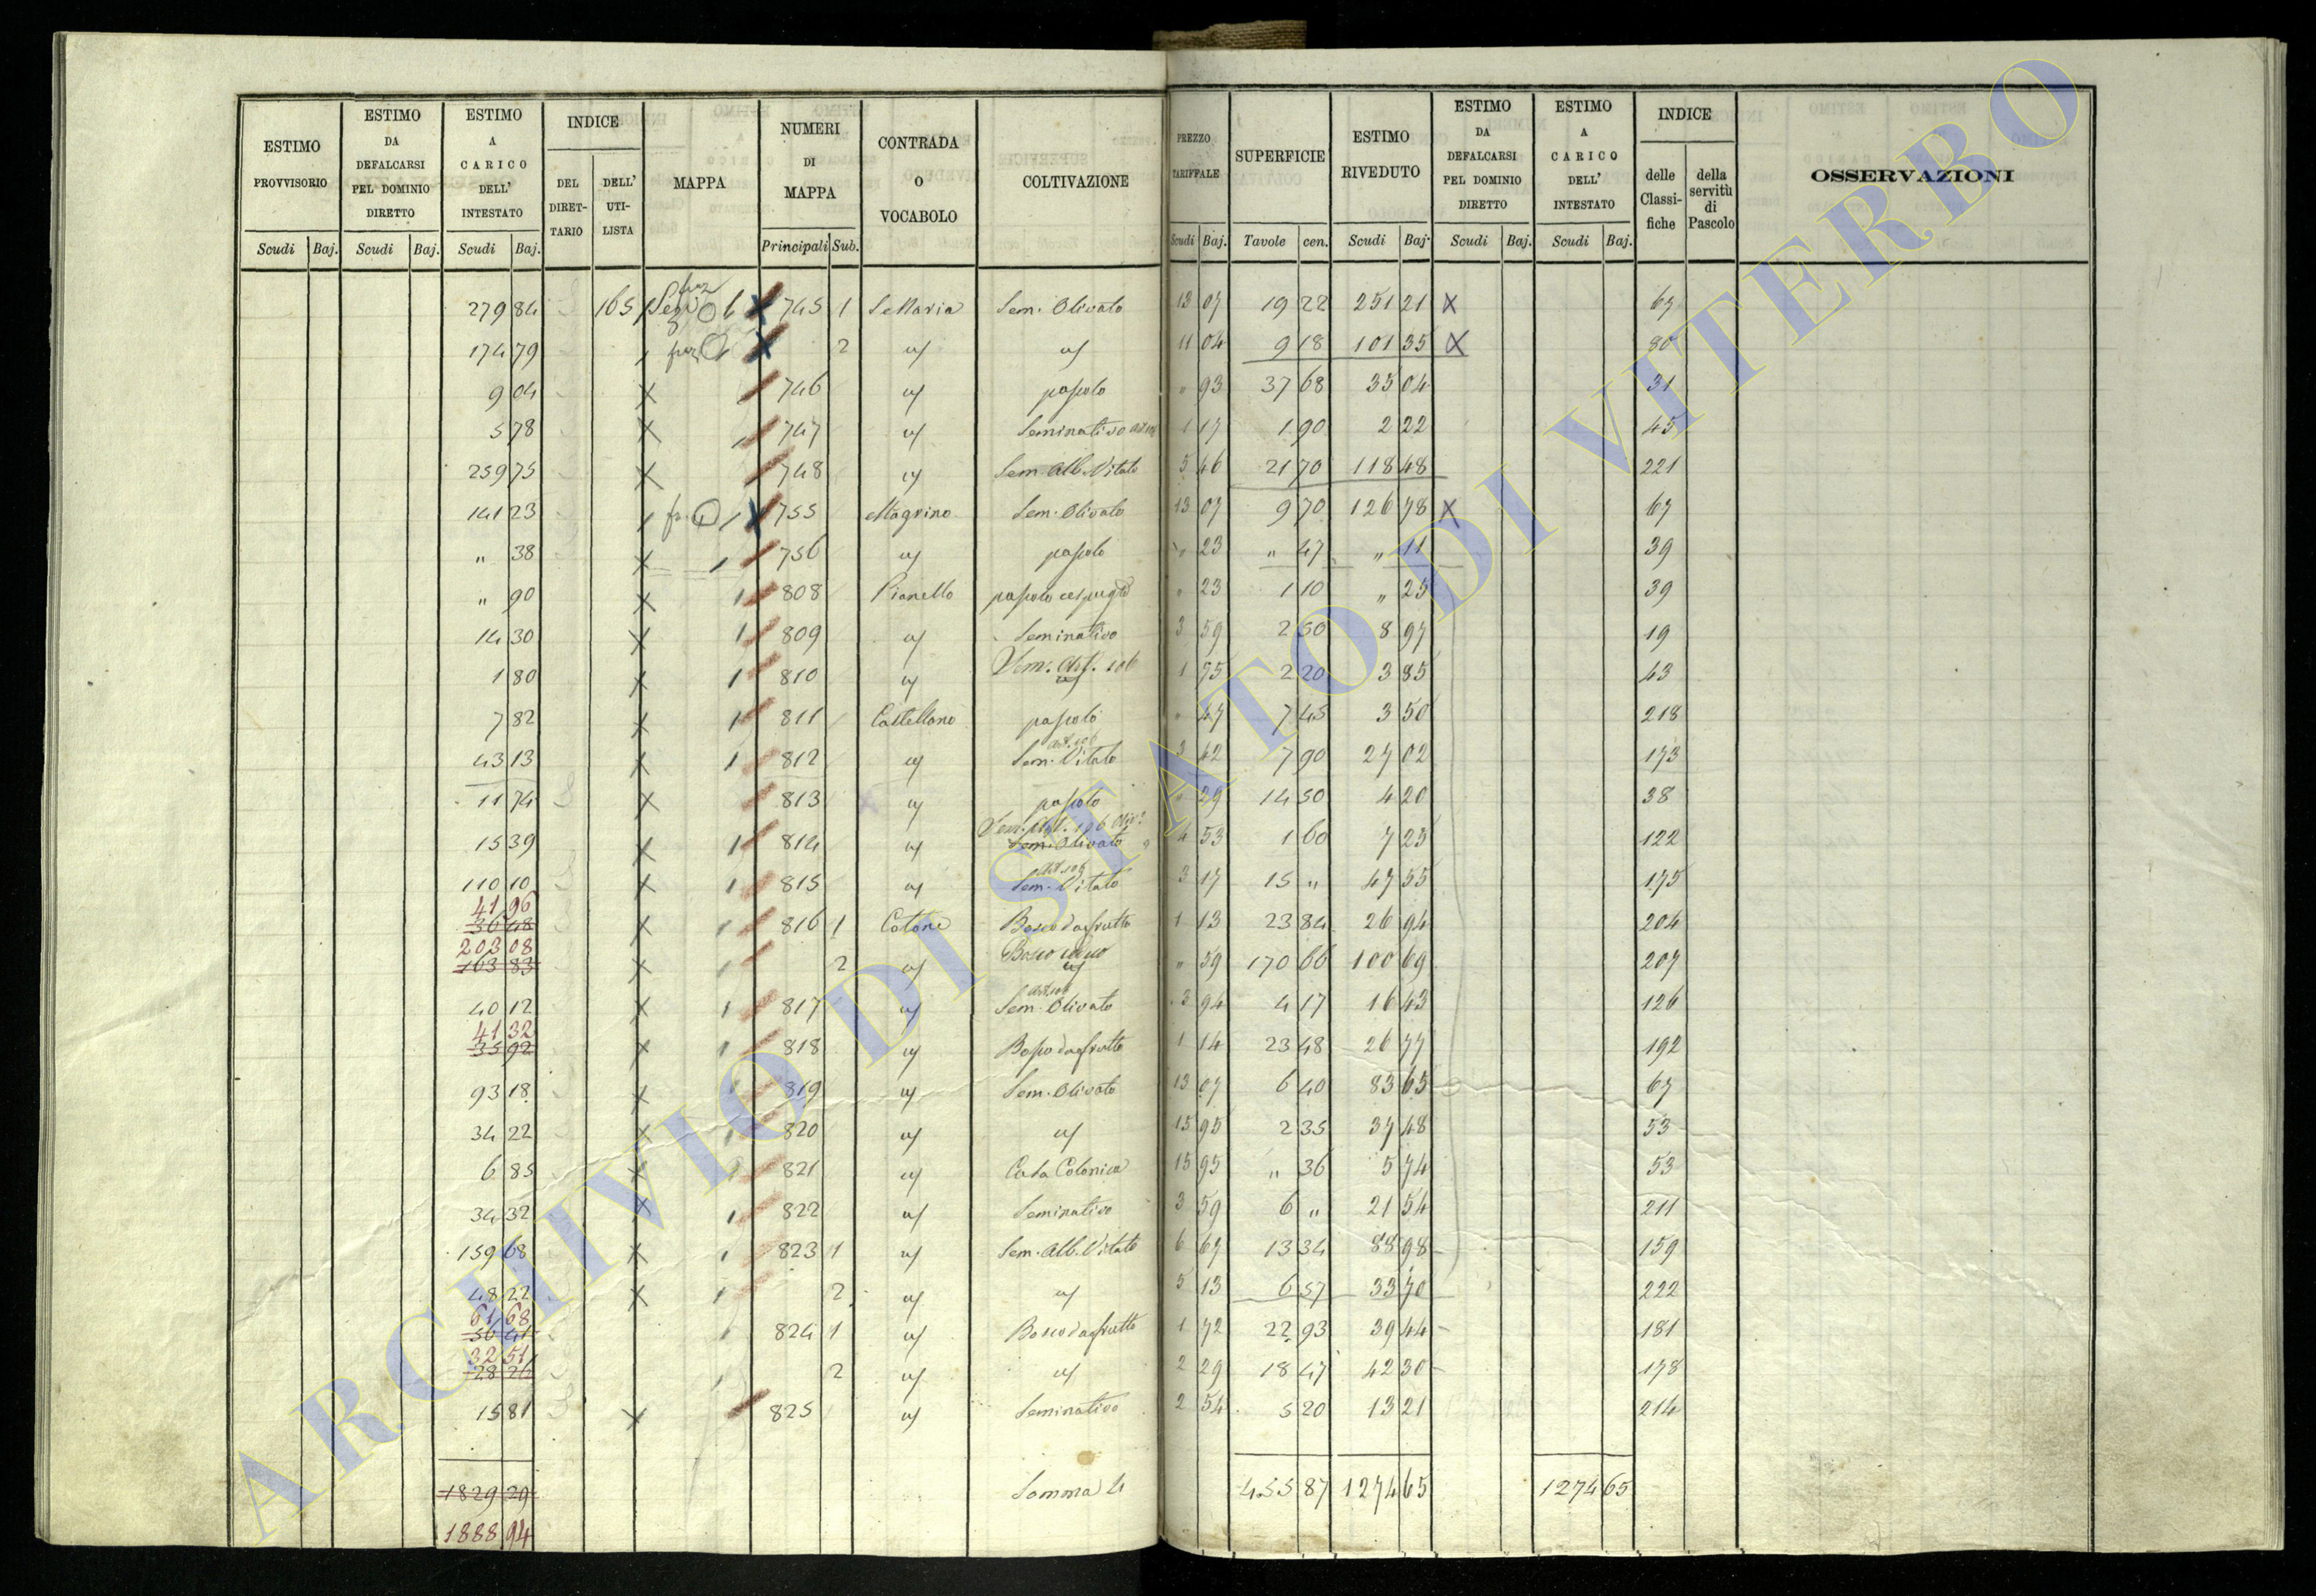 ESTIMO PROVVISORIO
ESTIMO DA DEFALCARSI PEL DOMINIO DIRETTO
ESTIMO A CARICO DELL' INTESTATO
INDICE
DEL DIRETTARIO
DELL' UTILISTA
MAPPA
NUMERI DI MAPPA
CONTRADA O VOCABOLO
COLTIVAZIONE
PREZZO TARIFFALE
SUPERFICIE
ESTIMO RIVEDUTO
ESTIMO DA DEFALCARSI PEL DOMINIO DIRETTO
ESTIMO A CARICO DELL' INTESTATO
INDICE
delle Classifiche
della servitù di Pascolo
OSSERVAZIONI
Scudi Baj. Scudi Baj. Scudi Baj. Principali Sub. Scudi Baj. Tavole cen. Scudi Baj. Scudi Baj. Scudi Baj.
279 84 165 745 1 Sem. Olivato 13 07 19 22 251 21 X 67
174 79 2 11 04 9 18 101 35 X 80
9 04 X 746 pascolo " 93 37 68 35 04 31
5 78 X 747 Seminativo 1 17 1 90 2 22 45
259 75 X 748 Sem. Alb. Vitato 5 46 21 70 118 48 221
141 23 X 755 Magrino Sem. Olivato 13 07 9 70 126 78 X 67
" 38 X 756 pascolo " 23 " 47 " 11 39
" 90 X 808 Pianello pascolo " 23 1 10 " 25 39
14 30 X 809 Seminativo 3 59 2 50 8 97 19
1 80 X 810 1 75 2 20 3 85 43
7 82 X 811 Castellano pascolo " 47 7 45 3 50 218
43 13 X 812 Sem. Vitato 3 42 7 90 27 02 173
11 74 X 813 pascolo " 29 14 50 4 20 38
15 39 X 814 Sem. Olivato 4 53 1 60 7 25 122
110 10 X 815 Sem. Vitato 3 17 15 " 47 55 175
41 96
36 48 X 816 1 Catone Bosco da frutto 1 13 23 84 26 94 204
203 08
163 83 X 2 Bosco ceduo " 59 170 66 100 69 207
40 12 X 817 Sem. Olivato 3 94 4 17 16 43 126
41 32
35 92 X 818 Bosco da frutto 1 14 23 48 26 77 192
93 18 X 819 Sem. Olivato 13 07 6 40 83 65 67
34 22 X 820 15 95 2 35 37 48 53
6 85 X 821 Casa Colonica 15 95 " 36 5 74 53
34 32 X 822 Seminativo 3 59 6 " 21 54 211
159 68 X 823 1 Sem. Alb. Vitato 6 67 13 34 88 98 159
48 22 X 2 5 13 6 57 33 70 222
61 68
56 41 824 1 Bosco da frutto 1 72 22 93 39 44 181
32 51
28 26 2 2 29 18 47 42 30 178
15 81 X 825 Seminativo 2 54 5 20 13 21 214
1829 29 Somma 455 87 1274 65 1274 65
1888 94
ARCHIVIO DI STATO DI VITERBO